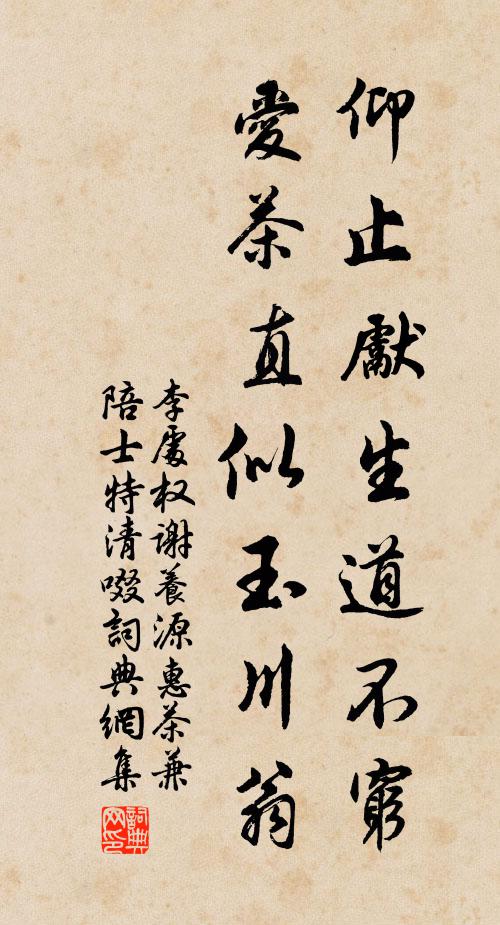 仰止獻生道不窮
愛茶直似玉川翁
李處权谢養源惠茶兼
陪士特清啜詞典網集
詞典网印